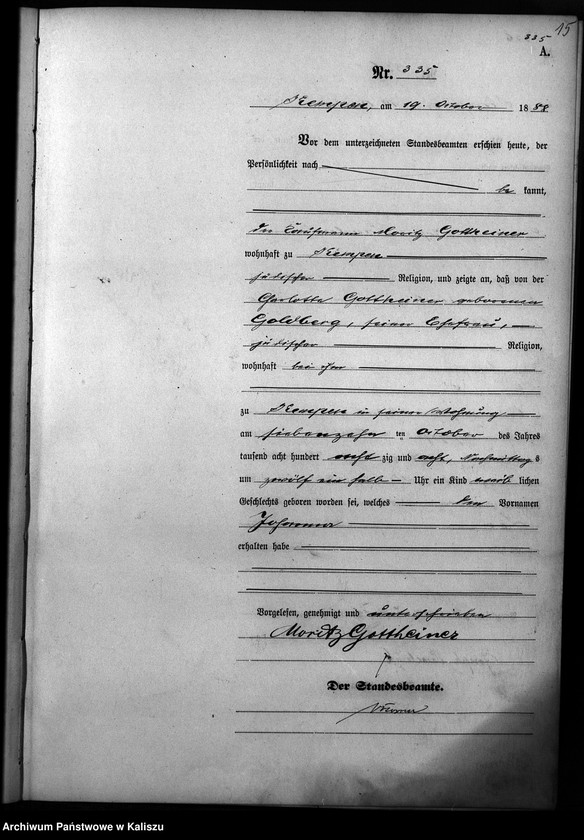 15
335
A.
Nr. 335
Kempen, am 19. October 1888
Vor dem unterzeichneten Standesbeamten erschien heute, der
Persönlichkeit nach
be kannt,
der Kaufmann Moritz Gottheiner
wohnhaft zu Kempen
jüdischer Religion, und zeigte an, daß von der
Charlotte Gottheiner geborenen
Goldberg, seiner Ehefrau,
jüdischer Religion,
wohnhaft bei ihm
zu Kempen in seiner Wohnung
am siebenzehn ten October des Jahres
tausend acht hundert acht zig und acht, Nachmittag s
um zwölf ein halb Uhr ein Kind weib lichen
Geschlechts geboren worden sei, welches den Vornamen
Johanna
erhalten habe
Vorgelesen, genehmigt und unterschrieben
Moritz Gottheiner
Der Standesbeamte.
Archiwum Państwowe w Kaliszu